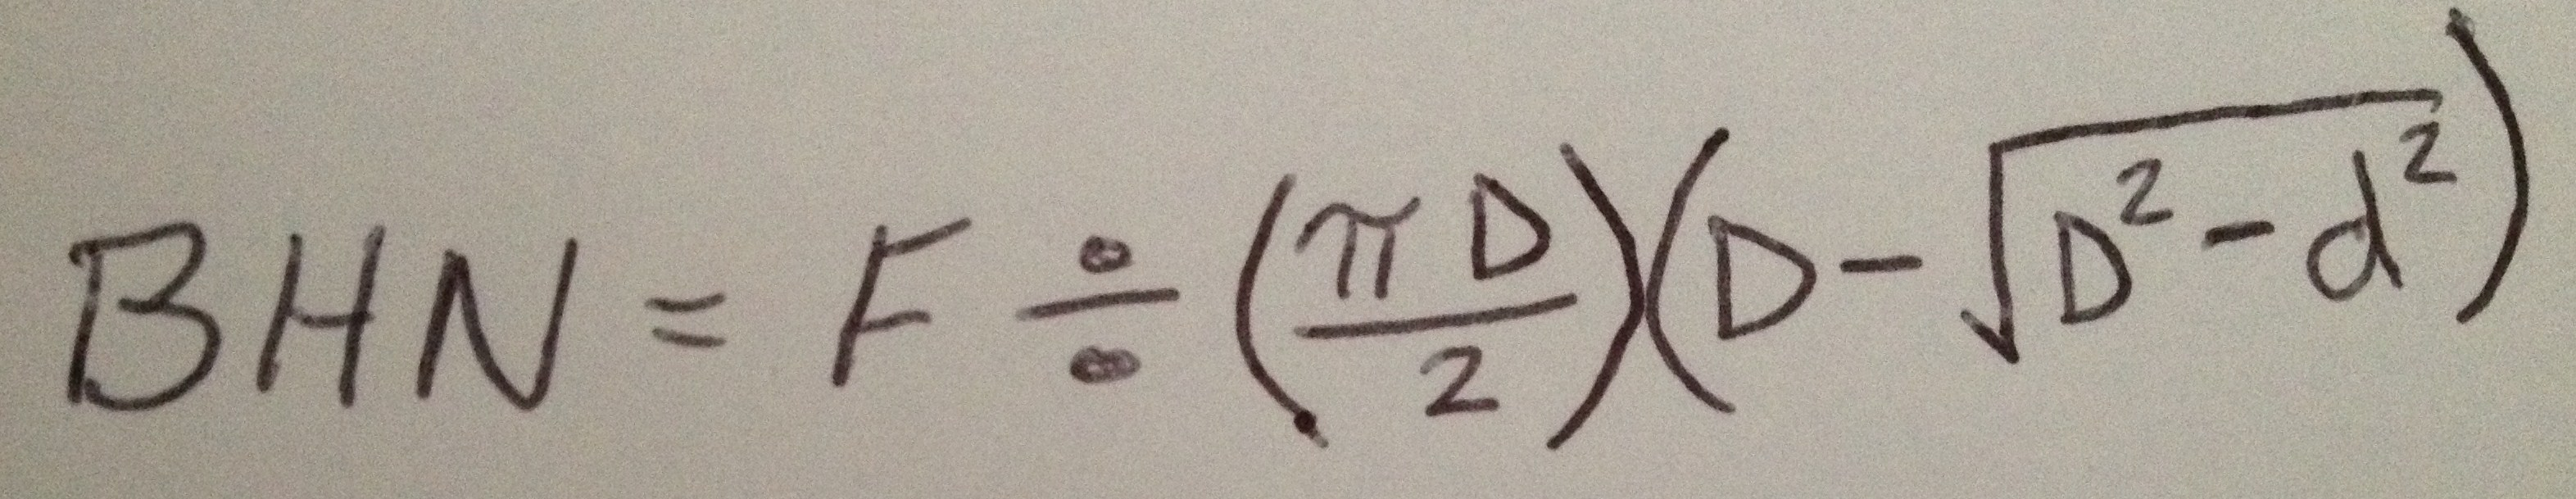 BHN = F ÷ (πD/2)(D - √(D² - d²))